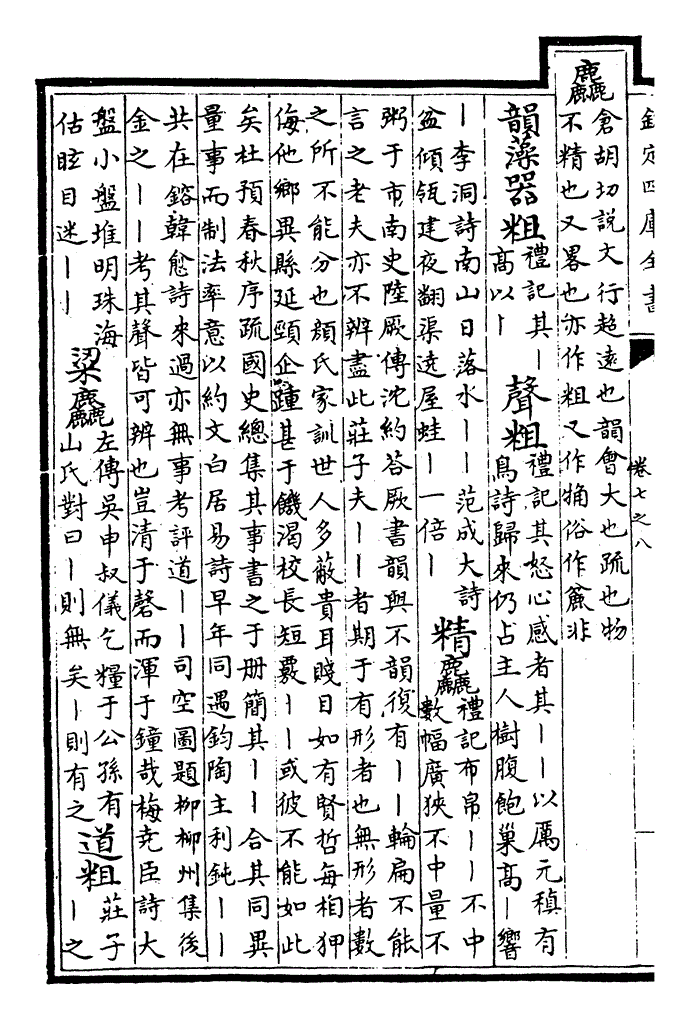 欽定四庫全書 卷七之八
麤
倉胡切説文行超遠也韻會大也疏也物
不精也又畧也亦作粗又作觕俗作麄非
韻藻器粗
禮記其丨
高以丨
聲粗
禮記其怒心感者其丨丨以厲元稹有
鳥詩歸來仍占主人樹腹飽巢高丨響
丨李洞詩南山日落水丨丨范成大詩
盆傾瓴建夜翻渠遶屋蛙丨一倍丨
精麤
禮記布帛丨丨不中
數幅廣狹不中量不
粥于市南史陸厥傳沈約答厥書韻與不韻復有丨丨輪扁不能
言之老夫亦不辨盡此莊子夫丨丨者期于有形者也無形者數
之所不能分也顔氏家訓世人多蔽貴耳賤目如有賢哲每相狎
侮他鄉異縣延頸企踵甚于饑渴校長短覈丨丨或彼不能如此
矣杜預春秋序疏國史總集其事書之于册簡其丨丨合其同異
量事而制法率意以約文白居易詩早年同遇鈞陶主利鈍丨丨
共在鎔韓愈詩來過亦無事考評道丨丨司空圖題柳柳州集後
金之丨丨考其聲皆可辨也豈清于磬而渾于鐘哉梅堯臣詩大
盤小盤堆明珠海
估眩目迷丨丨
粱麤
左傳吳申叔儀乞糧于公孫有
山氏對曰丨則無矣丨則有之
道粗
莊子
丨之